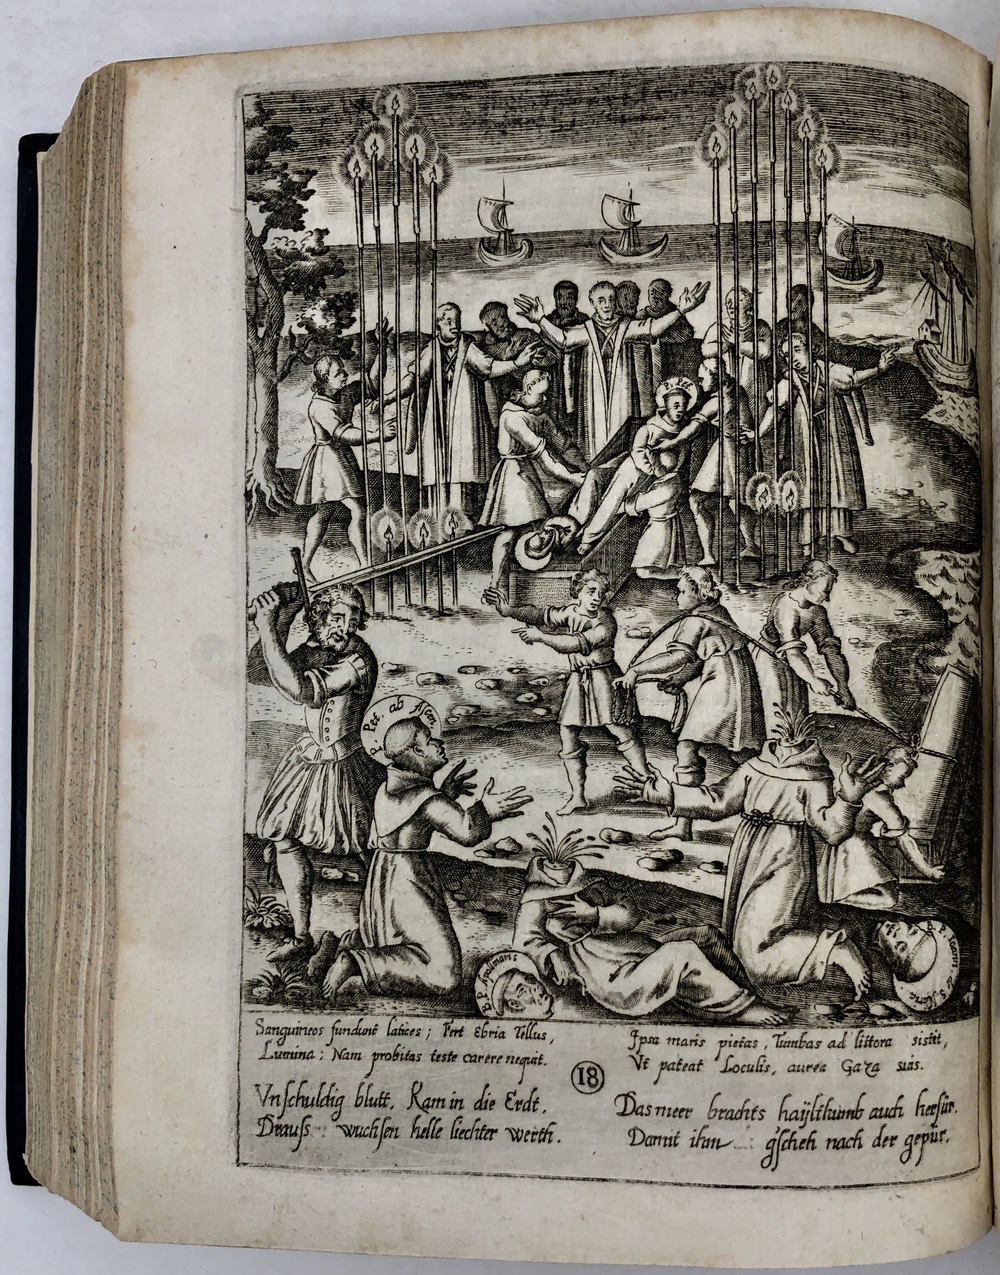 P. Pet.
P. Pet. ab Ascen.
B. P. Apolinaris
Sanguineos fundunt latices; Fert Ebria Tellus,
Lumina: Nam probitas teste carere nequit.
Ipsa maris pietas, Tumbas ad littora sistit,
Vt pateat Loculis, aurea Gaza suis.
18
Vnschuldig blutt, Kam in die Erdt,
Drauss wuchsen helle liechter werth.
Das meer brachts haÿlthumb auch herfür,
Damit ihm gscheh nach der gepür.